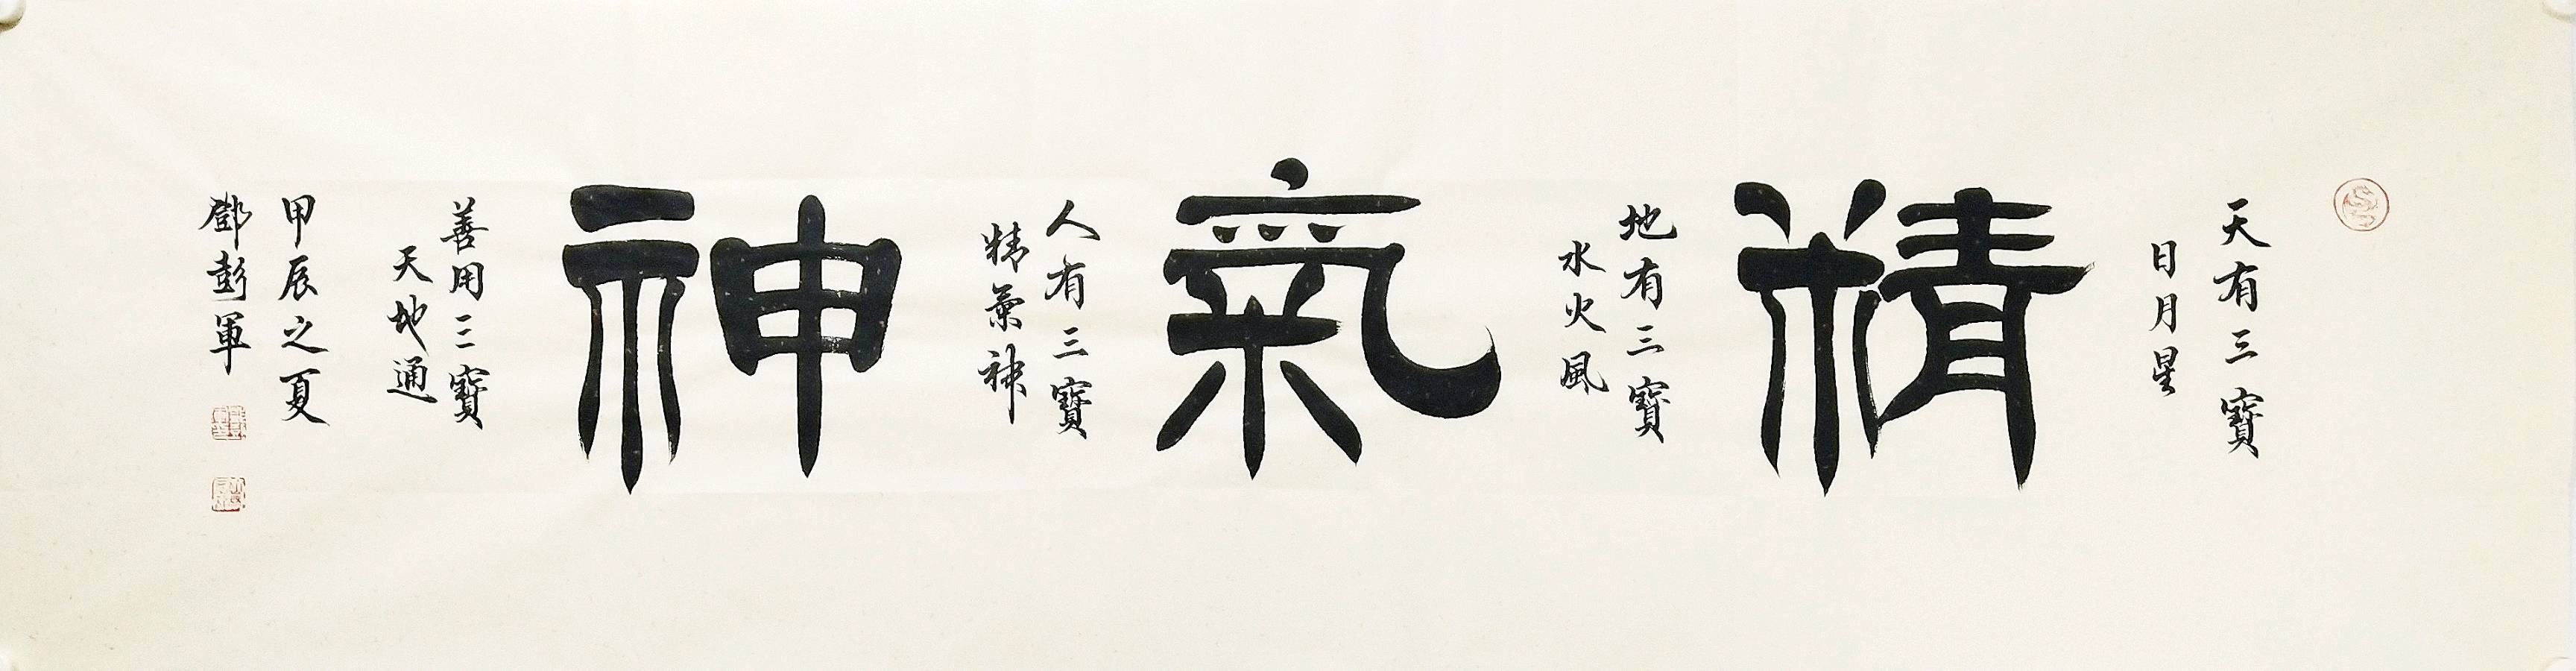 天有三寶
日月星
精
地有三寶
水火風
氣
人有三寶
精氣神
神
善用三寶
天地通
甲辰之夏
鄧彭軍